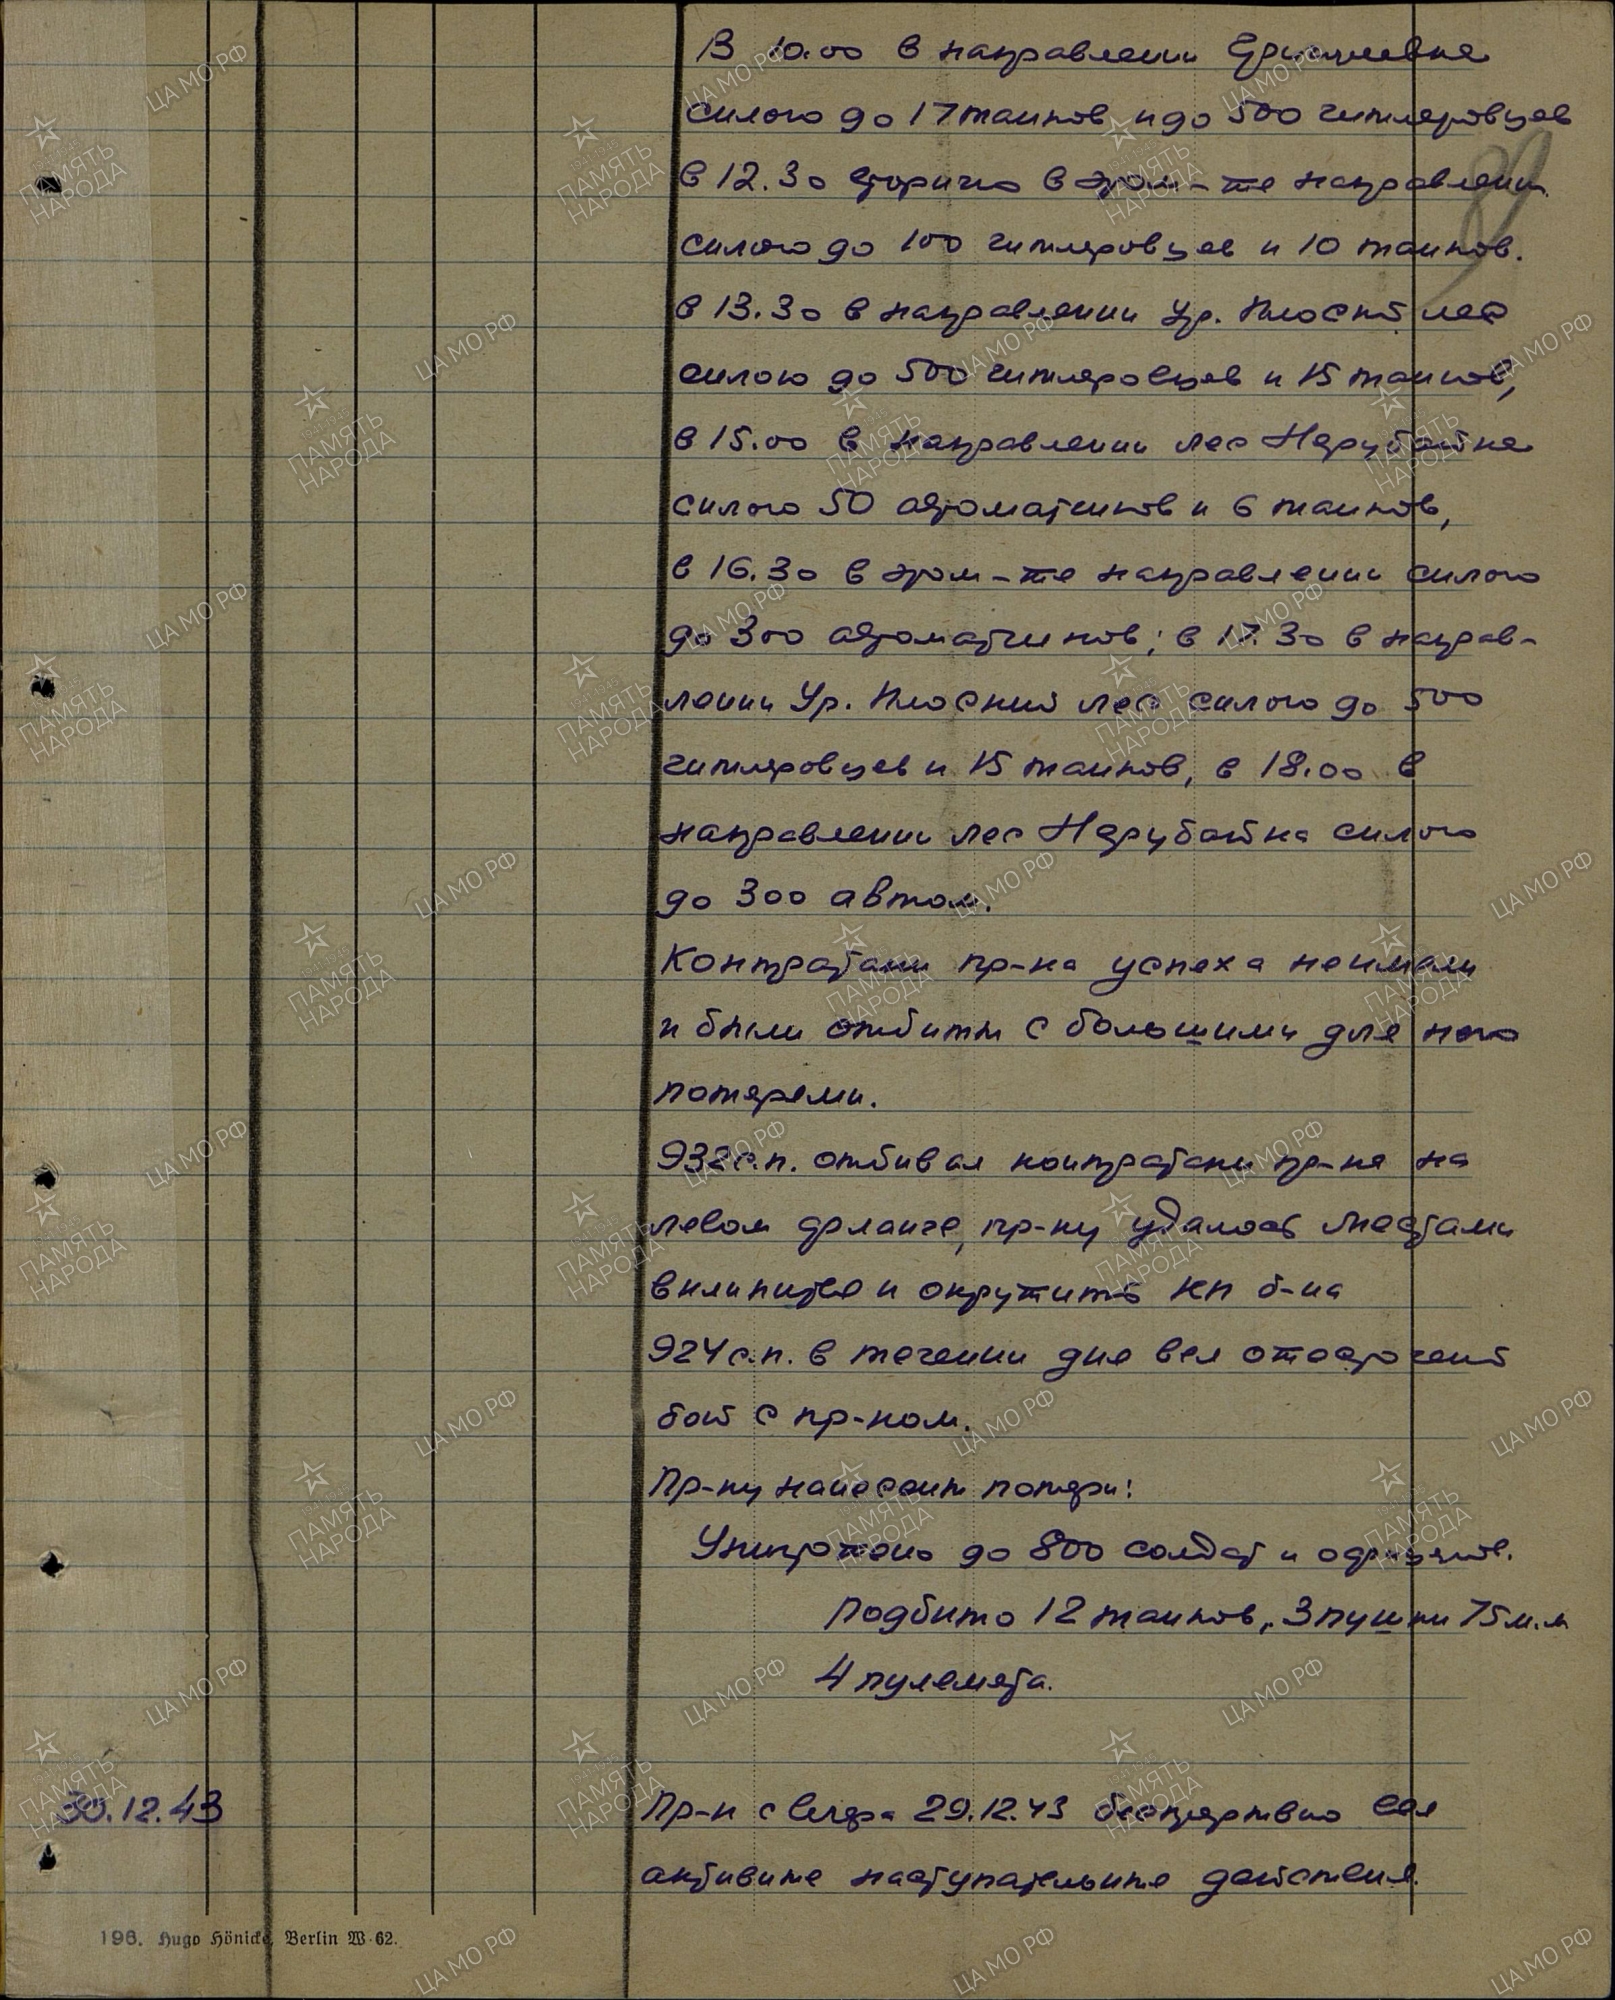 В 10.00 в направлении
силою до 17 танков и до 500 гитлеровцев
в 12.30 вторично в этом-же направлении
силою до 100 гитлеровцев и 10 танков.
в 13.30 в направлении Ур. Плоский лес
силою до 500 гитлеровцев и 15 танков,
в 15.00 в направлении лес Нерубайка
силою 50 автоматчиков и 6 танков,
в 16.30 в этом-же направлении силою
до 300 автоматчиков; в 17.30 в направ-
лении Ур. Плоский лес силою до 500
гитлеровцев и 15 танков, в 18.00 в
направлении лес Нерубайка силою
до 300 автом.
Контратаки пр-ка успеха не имели
и были отбиты с большими для него
потерями.
938 с.п. отбивал контратаки пр-ка на
левом фланге, пр-ку удалось местами
вклиниться и окружить КП б-на
924 с.п. в течении дня вел ожесточений
бой с пр-ком.
Пр-ку нанесены потери:
Уничтожено до 800 солдат и офицеров.
Подбито 12 танков, 3 пушки 75 м.м
4 пулемета.
30.12.43 Пр-к с вечера 29.12.43 беспрерывно вел
активные наступательные действия.
196. Hugo Hönicke, Berlin W 62.
ПАМЯТЬ НАРОДА
ЦАМО РФ